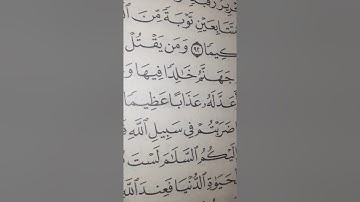 تَتَابِعَيْنِ تَوْبَةً مِّنَ
كِيمًا ٩٢ وَمَن يَقْتُلْ
جَهَنَّمُ خَٰلِدًا فِيهَا وَ
أَعَدَّ لَهُۥ عَذَابًا عَظِيمًا
ضَرَبْتُمْ فِي سَبِيلِ ٱللَّهِ فَ
إِلَيْكُمُ ٱلسَّلَٰمَ لَسْتَ
لْحَيَوٰةِ ٱلدُّنْيَا فَعِندَ ٱللَّهِ